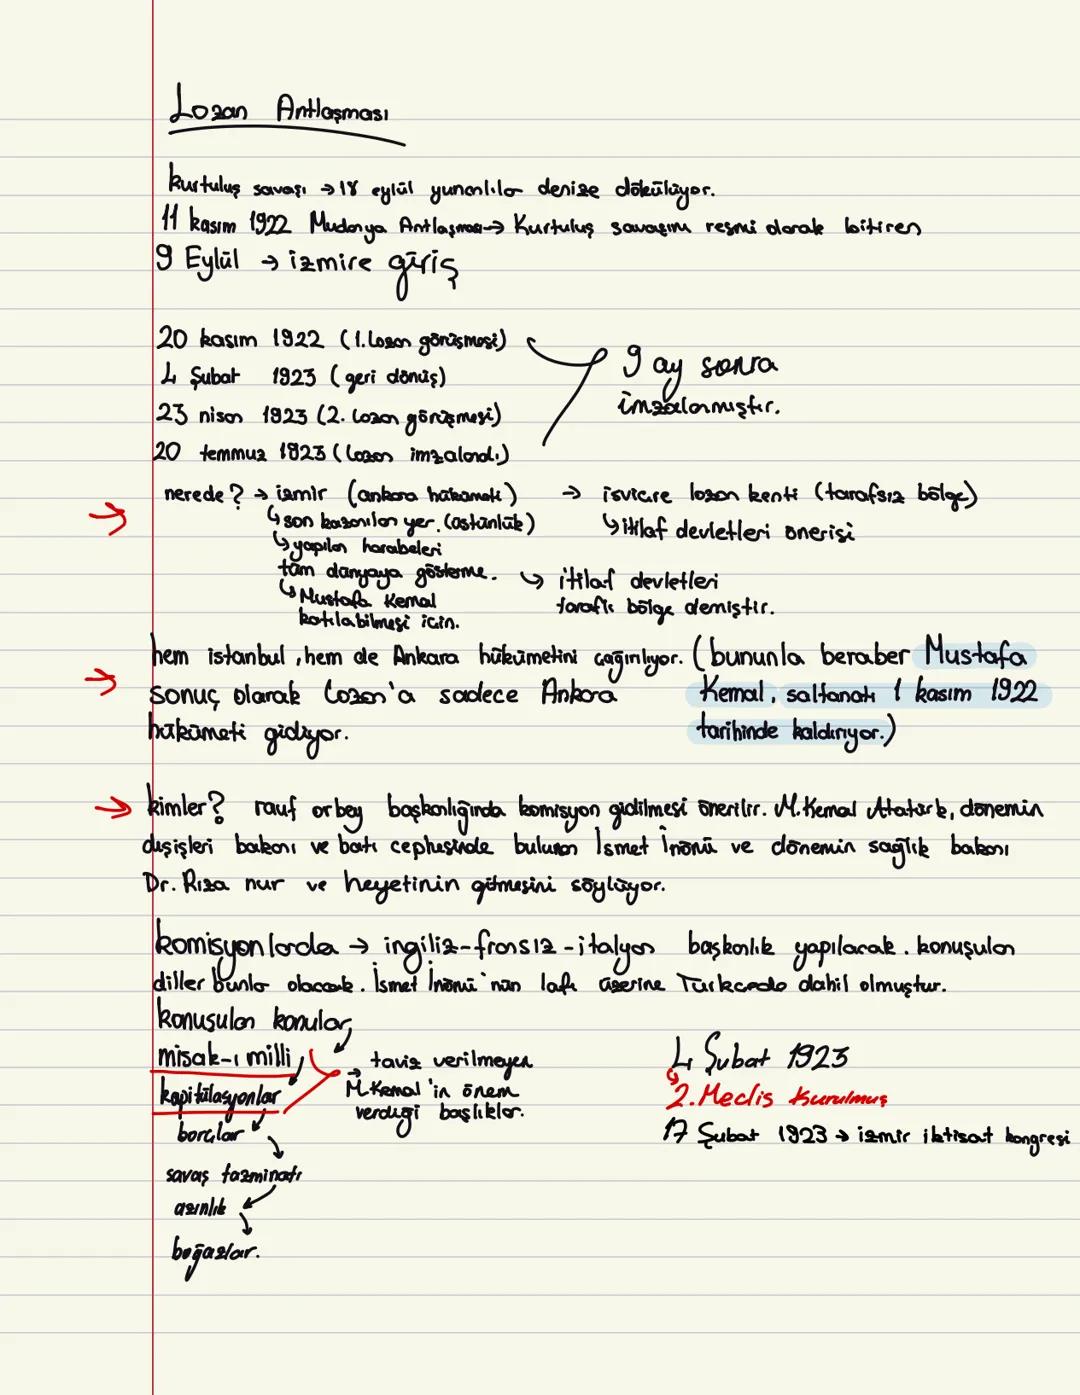 Lozan Antlaşması
kurtuluş savaşı → 18 eylül yunanlılar denize dökülüyor.
11 kasım 1922 Mudanya Antlaşması → Kurtuluş savaşını resmi olarak bitiren
9 Eylül → izmire giriş
20 kasım 1922 (1. Lozan görüşmesi)
4 Şubat 1923 (geri dönüş)
23 nisan 1923 (2. Lozan görüşmesi)
20 temmuz 1923 (Lozan imzalandı)
9 ay sonra
imzalanmıştır.
nerede? → izmir (ankara hükümeti)
↳ son kazanılan yer. (üstünlük)
↳ yapılan harabeleri
tüm dünyaya gösterme.
↳ Mustafa Kemal
katılabilmesi için.
→ isviçre lozan kenti (tarafsız bölge)
↳ itilaf devletleri önerisi
↳ itilaf devletleri
taraflı bölge demiştir.
hem istanbul, hem de Ankara hükümetini çağırılıyor. (bununla beraber Mustafa
sonuç olarak Lozan'a sadece Ankara
hükümeti gidiyor.
Kemal, saltanatı 1 kasım 1922
tarihinde kaldırıyor.)
→ kimler? rauf orbey başkanlığında komisyon gidilmesi önerilir. M. Kemal Atatürk, dönemin
dışişleri bakanı ve batı cephesinde bulunan İsmet İnönü ve dönemin sağlık bakanı
Dr. Rıza nur ve heyetinin gitmesini söylüyor.
komisyonlarda → ingiliz-fransız-italyan başkanlık yapılacak. konuşulan
diller bunlar olacak. İsmet İnönü'nün lafı üzerine Türkçede dahil olmuştur.
konuşulan konular
misak-ı milli
kapitülasyonlar
borçlar
savaş tazminatı
azınlık
boğazlar.
→ taviz verilmeyen
M. Kemal'in önem
verdiği başlıklar.
4 Şubat 1923
↳ 2. Meclis kurulmuş
17 Şubat 1923 → izmir iktisat kongresi